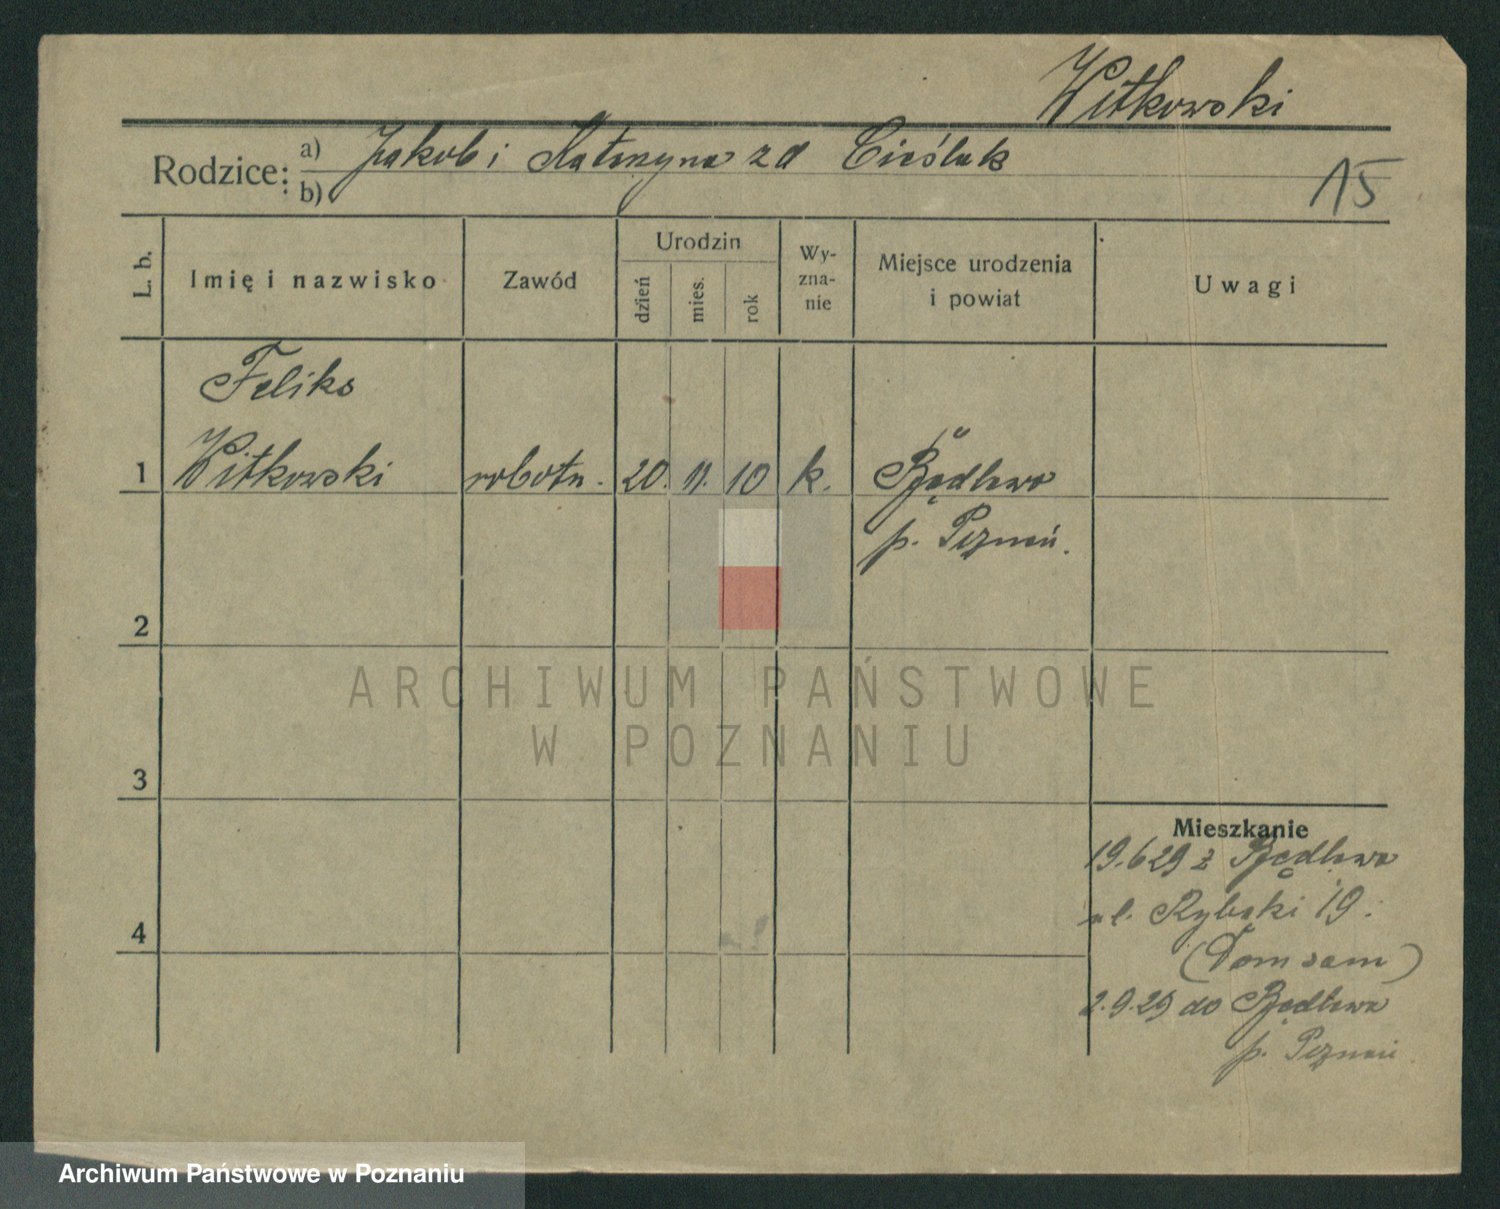 Witkowski
Rodzice: a) Jakób i Katarzyna zd Cieślak
b)
15
L. b.
Imię i nazwisko
Zawód
Urodzin
dzień
mies.
rok
Wy-
zna-
nie
Miejsce urodzenia
i powiat
Uwagi
Feliks
1 Witkowski robotn. 20. 11. 10 k. Będlewo
p. Poznań.
2
ARCHIWUM PAŃSTWOWE
W POZNANIU
3
Mieszkanie
19.6 29 z Będlewa
ul. Rybaki 19.
4
(Dom sam)
2.9.29 do Będlewa
p. Poznań
Archiwum Państwowe w Poznaniu